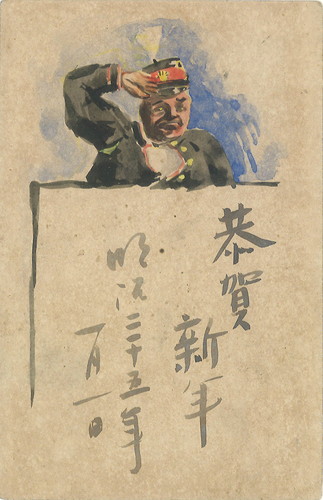 恭賀
新年
明治三十五年
一月一日